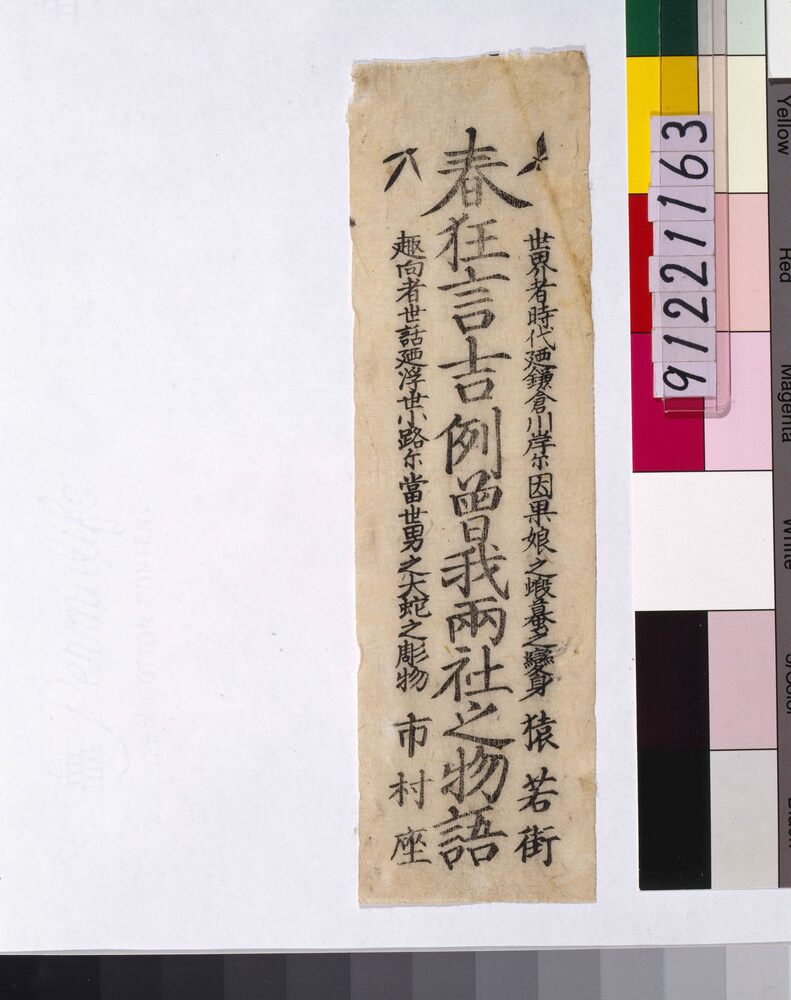 世界者時代廼鎌倉川岸尓因果娘之蝦蟇之變身
猿若街
春狂言吉例曾我兩社之物語
趣向者世話廼浮世小路尓當世男之大蛇之彫物
市村座
91221163
Yellow
Red
Magenta
White
3/Color